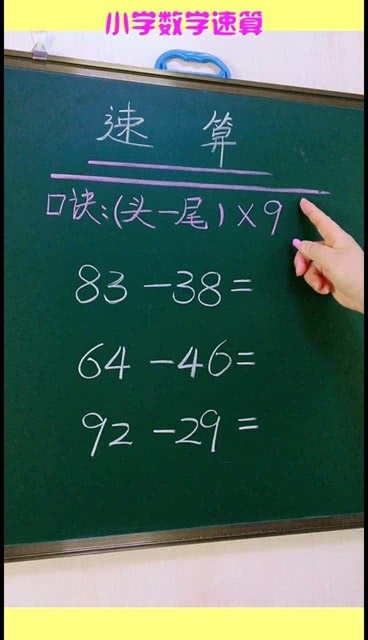 小学数学速算
速算
口诀:(头-尾)×9
83-38=
64-46=
92-29=